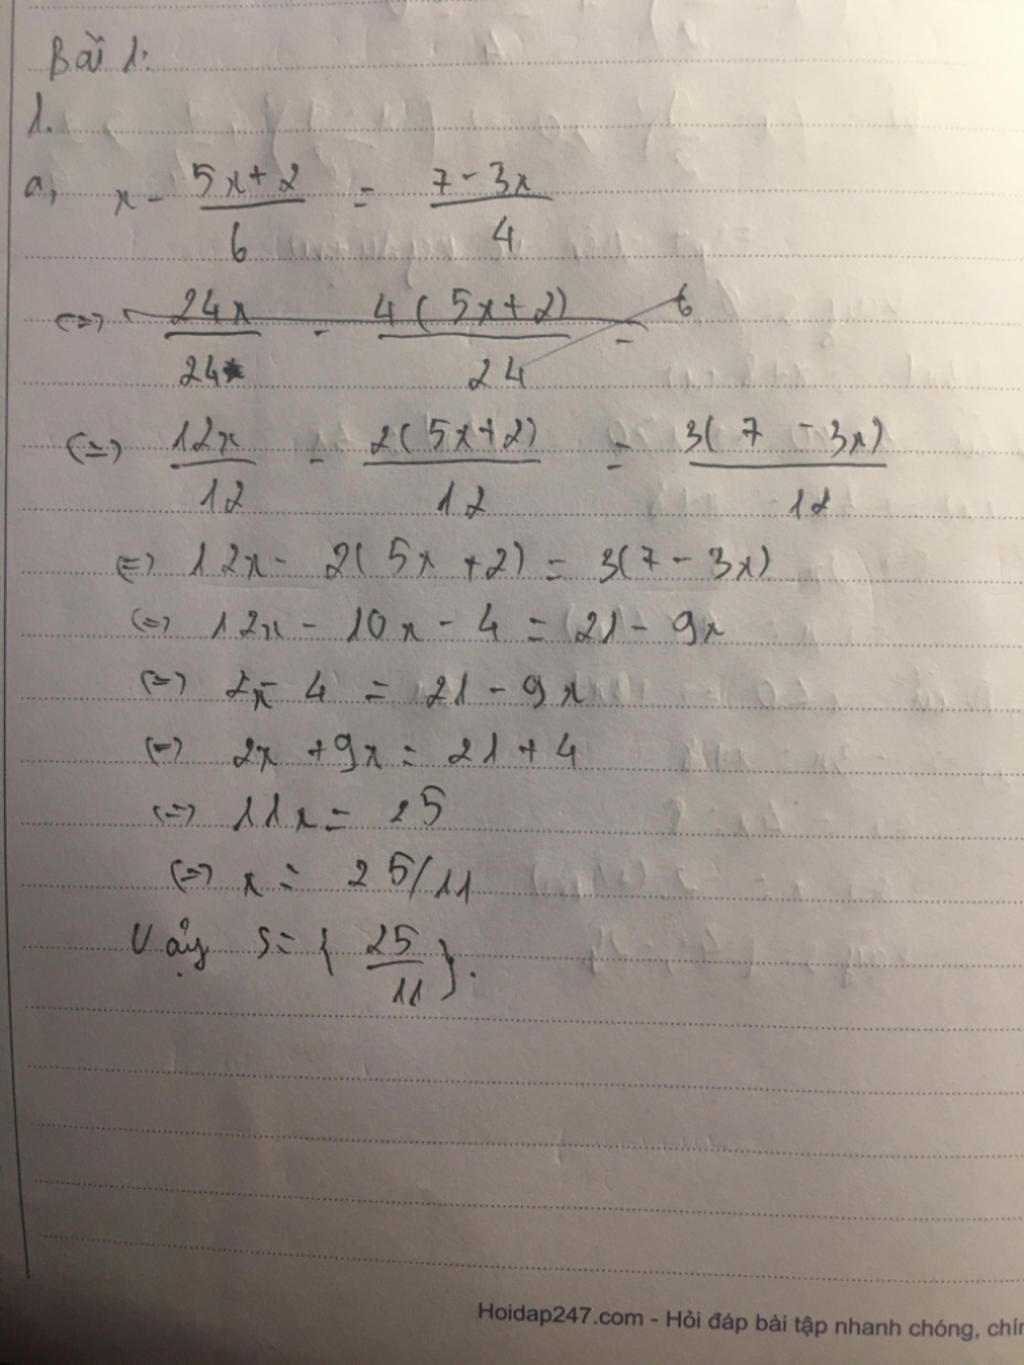 Bài 1:
1.
a, x - \frac{5x+2}{6} = \frac{7-3x}{4}
(=) \frac{24x}{24} - \frac{4(5x+2)}{24} = 6
(=) \frac{12x}{12} - \frac{2(5x+2)}{12} = \frac{3(7-3x)}{12}
(=) 12x - 2(5x+2) = 3(7-3x)
(=) 12x - 10x - 4 = 21 - 9x
(=) 2x - 4 = 21 - 9x
(=) 2x + 9x = 21 + 4
(=) 11x = 25
(=) x = 25/11
Vậy S = { \frac{25}{11} }.
Hoidap247.com - Hỏi đáp bài tập nhanh chóng, chín